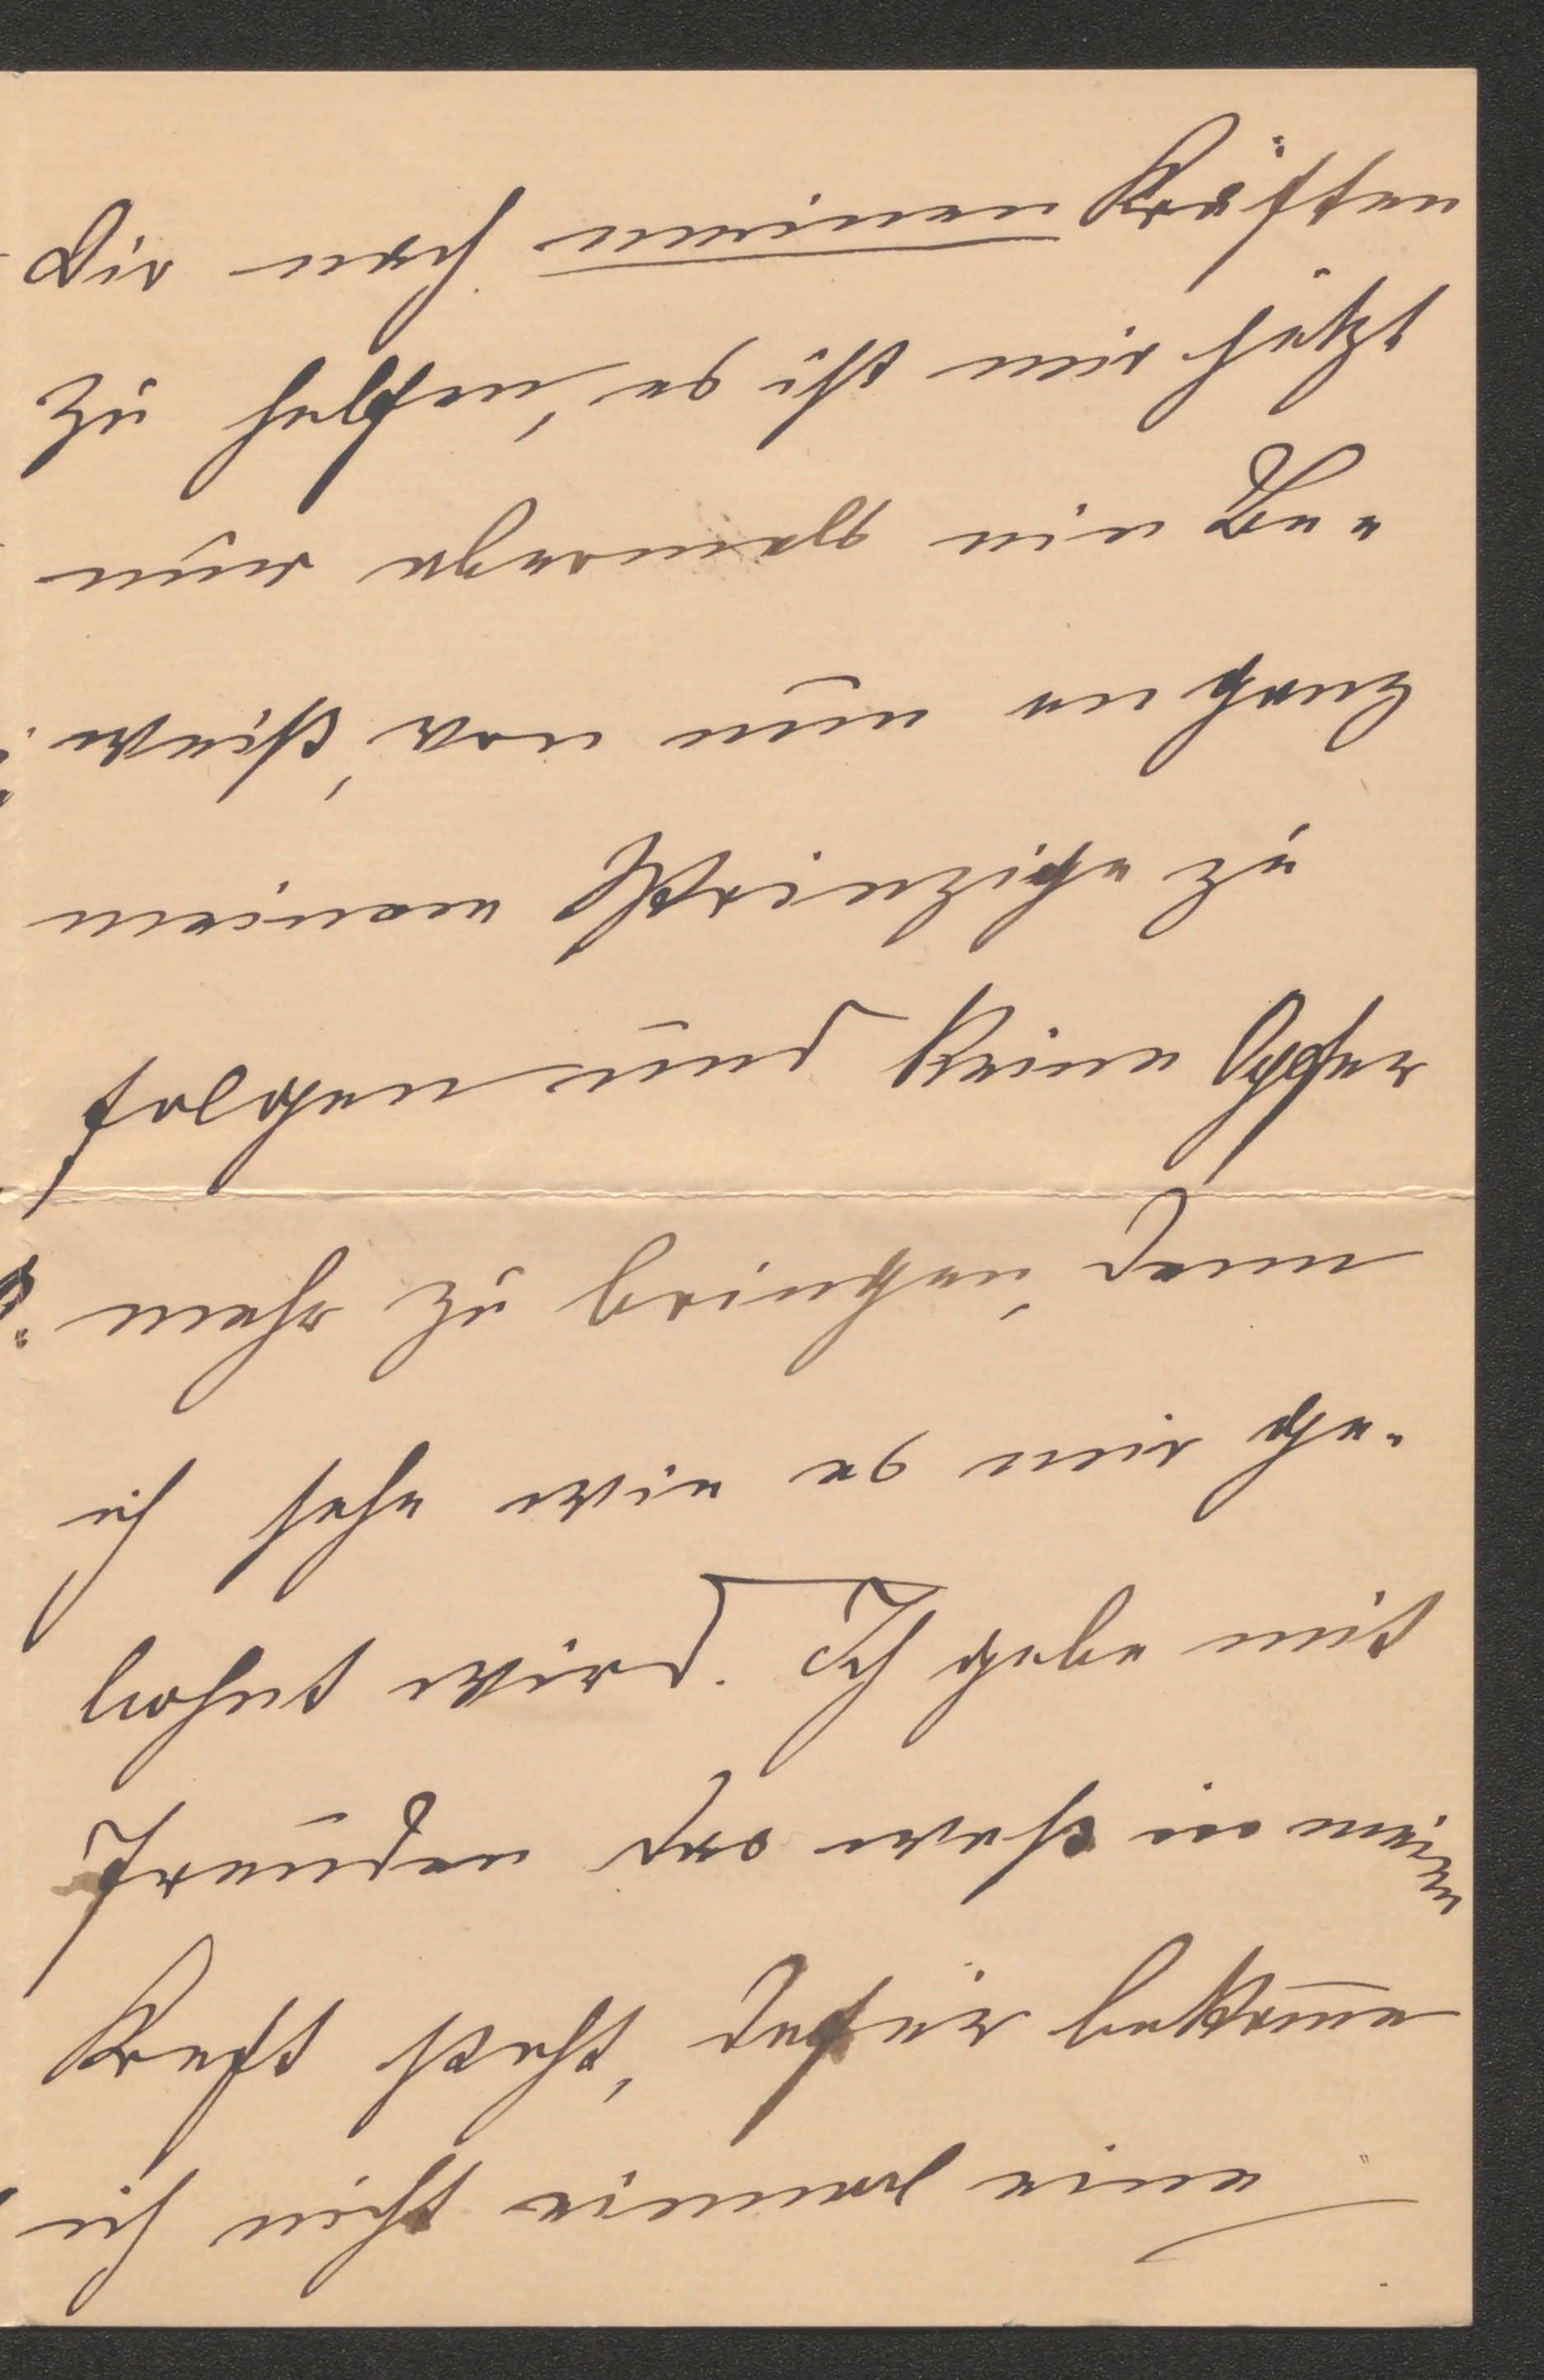 Dir nach meinen Kräften
zu helfen, es ist mir jetzt
nur abermals ein Be-
weiß, von nun an ganz
meinem Prinzipe zu
folgen und keine Opfer
mehr zu bringen, denn
ich sehe wie es mir ge-
lohnt wird. Ich gebe mit
Freuden das was in meiner
Kraft steht, dafür bekom̅e
ich nicht einmal eine